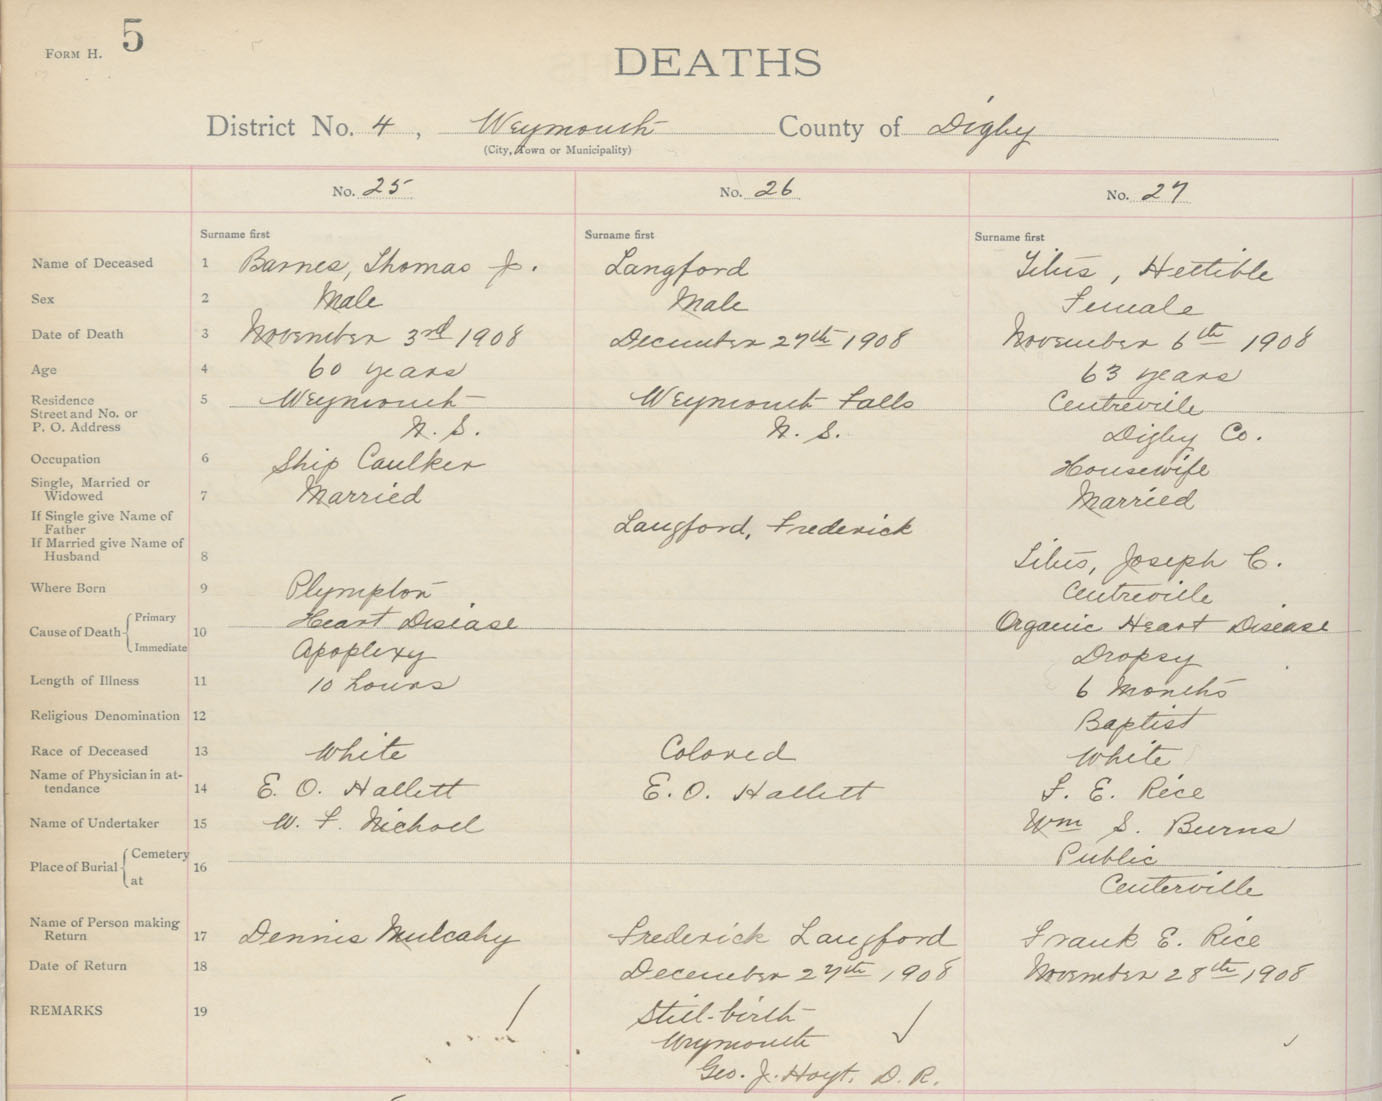 FORM H. 5
DEATHS
District No. 4, Weymouth County of Digby
(City, Town or Municipality)
No. 25 No. 26 No. 27
Surname first Surname first Surname first
Name of Deceased 1 Barnes, Thomas J. Langford Titus, Hettible
Sex 2 Male Male Female
Date of Death 3 November 3rd 1908 December 27th 1908 November 6th 1908
Age 4 60 years 63 years
Residence 5 Weymouth Weymouth Falls Centreville
Street and No. or
P. O. Address N. S. N. S. Digby Co.
Occupation 6 Ship Caulker Housewife
Single, Married or
Widowed 7 Married Married
If Single give Name of
Father Langford, Frederick
If Married give Name of
Husband 8 Titus, Joseph C.
Where Born 9 Plympton Centreville
Cause of Death 10 Primary Heart Disease Organic Heart Disease
Immediate Apoplexy Dropsy
Length of Illness 11 10 hours 6 Months
Religious Denomination 12 Baptist
Race of Deceased 13 White Colored White
Name of Physician in at-
tendance 14 E. O. Hallett E. O. Hallett F. E. Rice
Name of Undertaker 15 W. F. Nichool Wm S. Burns
Place of Burial 16 Cemetery Public
at Centerville
Name of Person making
Return 17 Dennis Mulcahy Frederick Langford Frank E. Rice
Date of Return 18 December 27th 1908 November 28th 1908
REMARKS 19 Still-birth
Weymouth
Geo. J. Hoyt, D. R.